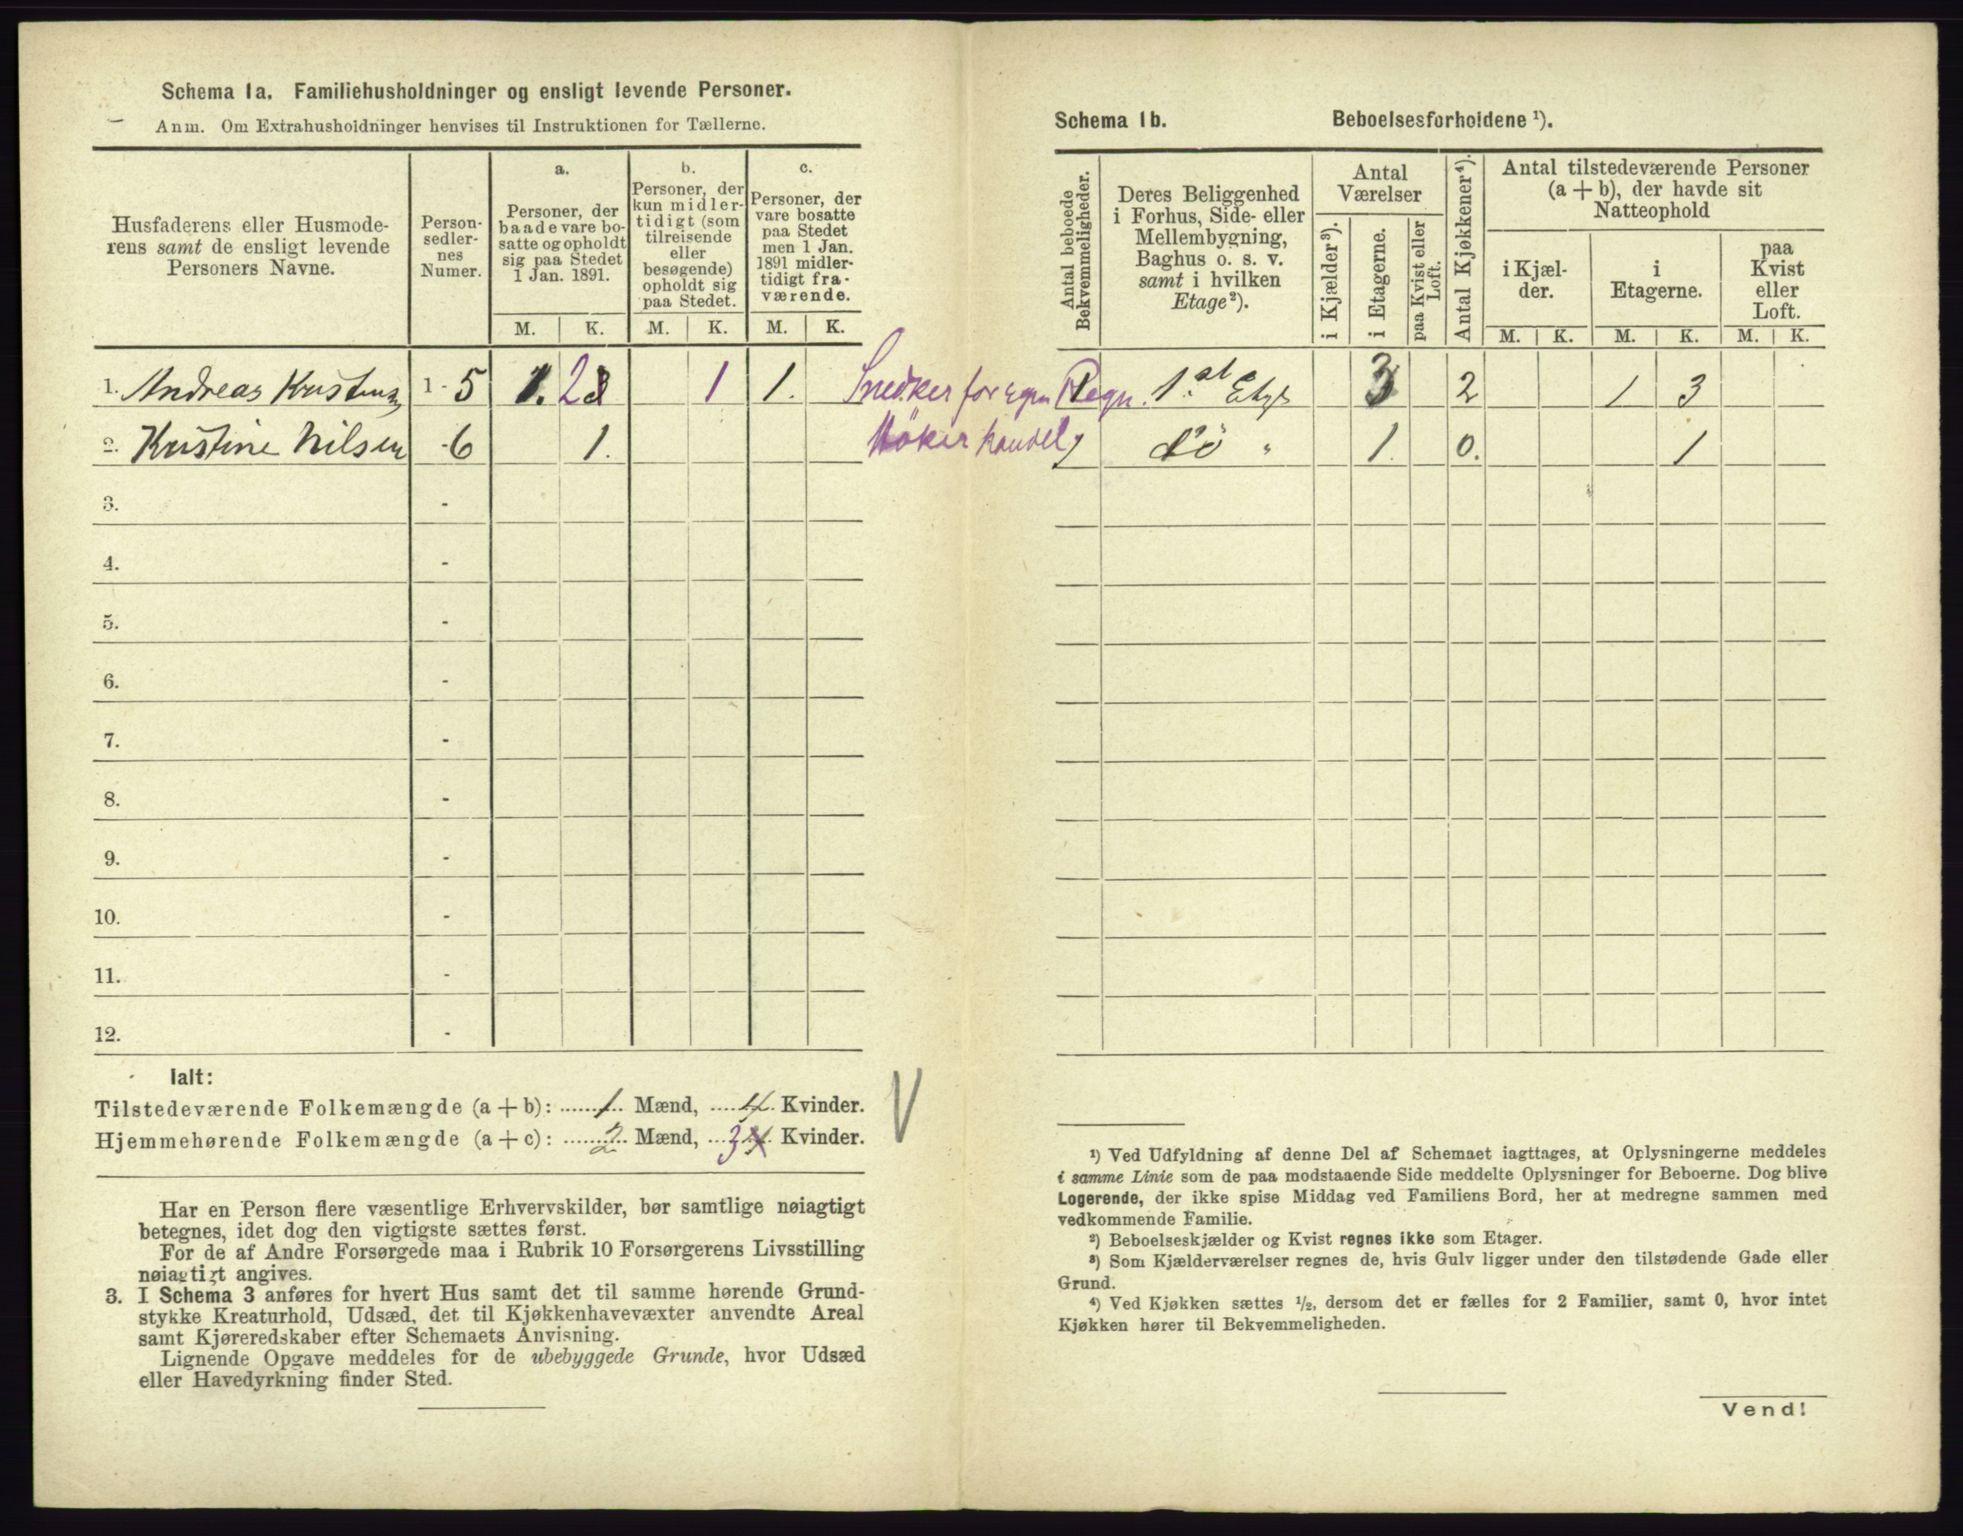 Schema 1a. Familiehusholdninger og ensligt levende Personer.
Anm. Om Extrahusholdninger henvises til Instruktionen for Tællerne.
Husfaderens eller Husmoderens samt de ensligt levende Personers Navne.
Personsedlernes Numer.
a. Personer, der baade vare bosatte og opholdt sig paa Stedet 1 Jan. 1891.
b. Personer, der kun midlertidigt (som tilreisende eller besøgende) opholdt sig paa Stedet.
c. Personer, der vare bosatte paa Stedet men 1 Jan. 1891 midlertidigt fraværende.
M. K. M. K. M. K.
1. Andreas Kristensen 1 - 5 1. 2 1 1. Snedker for egen Regn.
2. Kristine Nilsen - 6 1. Høkerhandel
3. -
4. -
5. -
6. -
7. -
8. -
9. -
10. -
11. -
12. -
Ialt:
Tilstedeværende Folkemængde (a + b): 1 Mænd, 4 Kvinder.
Hjemmehørende Folkemængde (a + c): 2 Mænd, 3 4 Kvinder.
Har en Person flere væsentlige Erhvervskilder, bør samtlige nøiagtigt
betegnes, idet dog den vigtigste sættes først.
For de af Andre Forsørgede maa i Rubrik 10 Forsørgerens Livsstilling
nøiagtigt angives.
3. I Schema 3 anføres for hvert Hus samt det til samme hørende Grund-
stykke Kreaturhold, Udsæd, det til Kjøkkenhavevæxter anvendte Areal
samt Kjøreredskaber efter Schemaets Anvisning.
Lignende Opgave meddeles for de ubebyggede Grunde, hvor Udsæd
eller Havedyrkning finder Sted.
Schema 1b. Beboelsesforholdene ¹).
Antal beboede Bekvemmeligheder.
Deres Beliggenhed i Forhus, Side- eller Mellembygning, Baghus o. s. v. samt i hvilken Etage²).
Antal Værelser
i Kjælder³).
i Etagerne.
paa Kvist eller Loft.
Antal Kjøkkener⁴).
Antal tilstedeværende Personer (a + b), der havde sit Natteophold
i Kjælder.
i Etagerne.
paa Kvist eller Loft.
M. K. M. K. M. K.
1 1.st Etage 3 2 1 3
1 do " 1. 0. 1
¹) Ved Udfyldning af denne Del af Schemaet iagttages, at Oplysningerne meddeles
i samme Linie som de paa modstaaende Side meddelte Oplysninger for Beboerne. Dog blive
Logerende, der ikke spise Middag ved Familiens Bord, her at medregne sammen med
vedkommende Familie.
²) Beboelseskjælder og Kvist regnes ikke som Etager.
³) Som Kjælderværelser regnes de, hvis Gulv ligger under den tilstødende Gade eller
Grund.
⁴) Ved Kjøkken sættes ½, dersom det er fælles for 2 Familier, samt 0, hvor intet
Kjøkken hører til Bekvemmeligheden.
Vend!